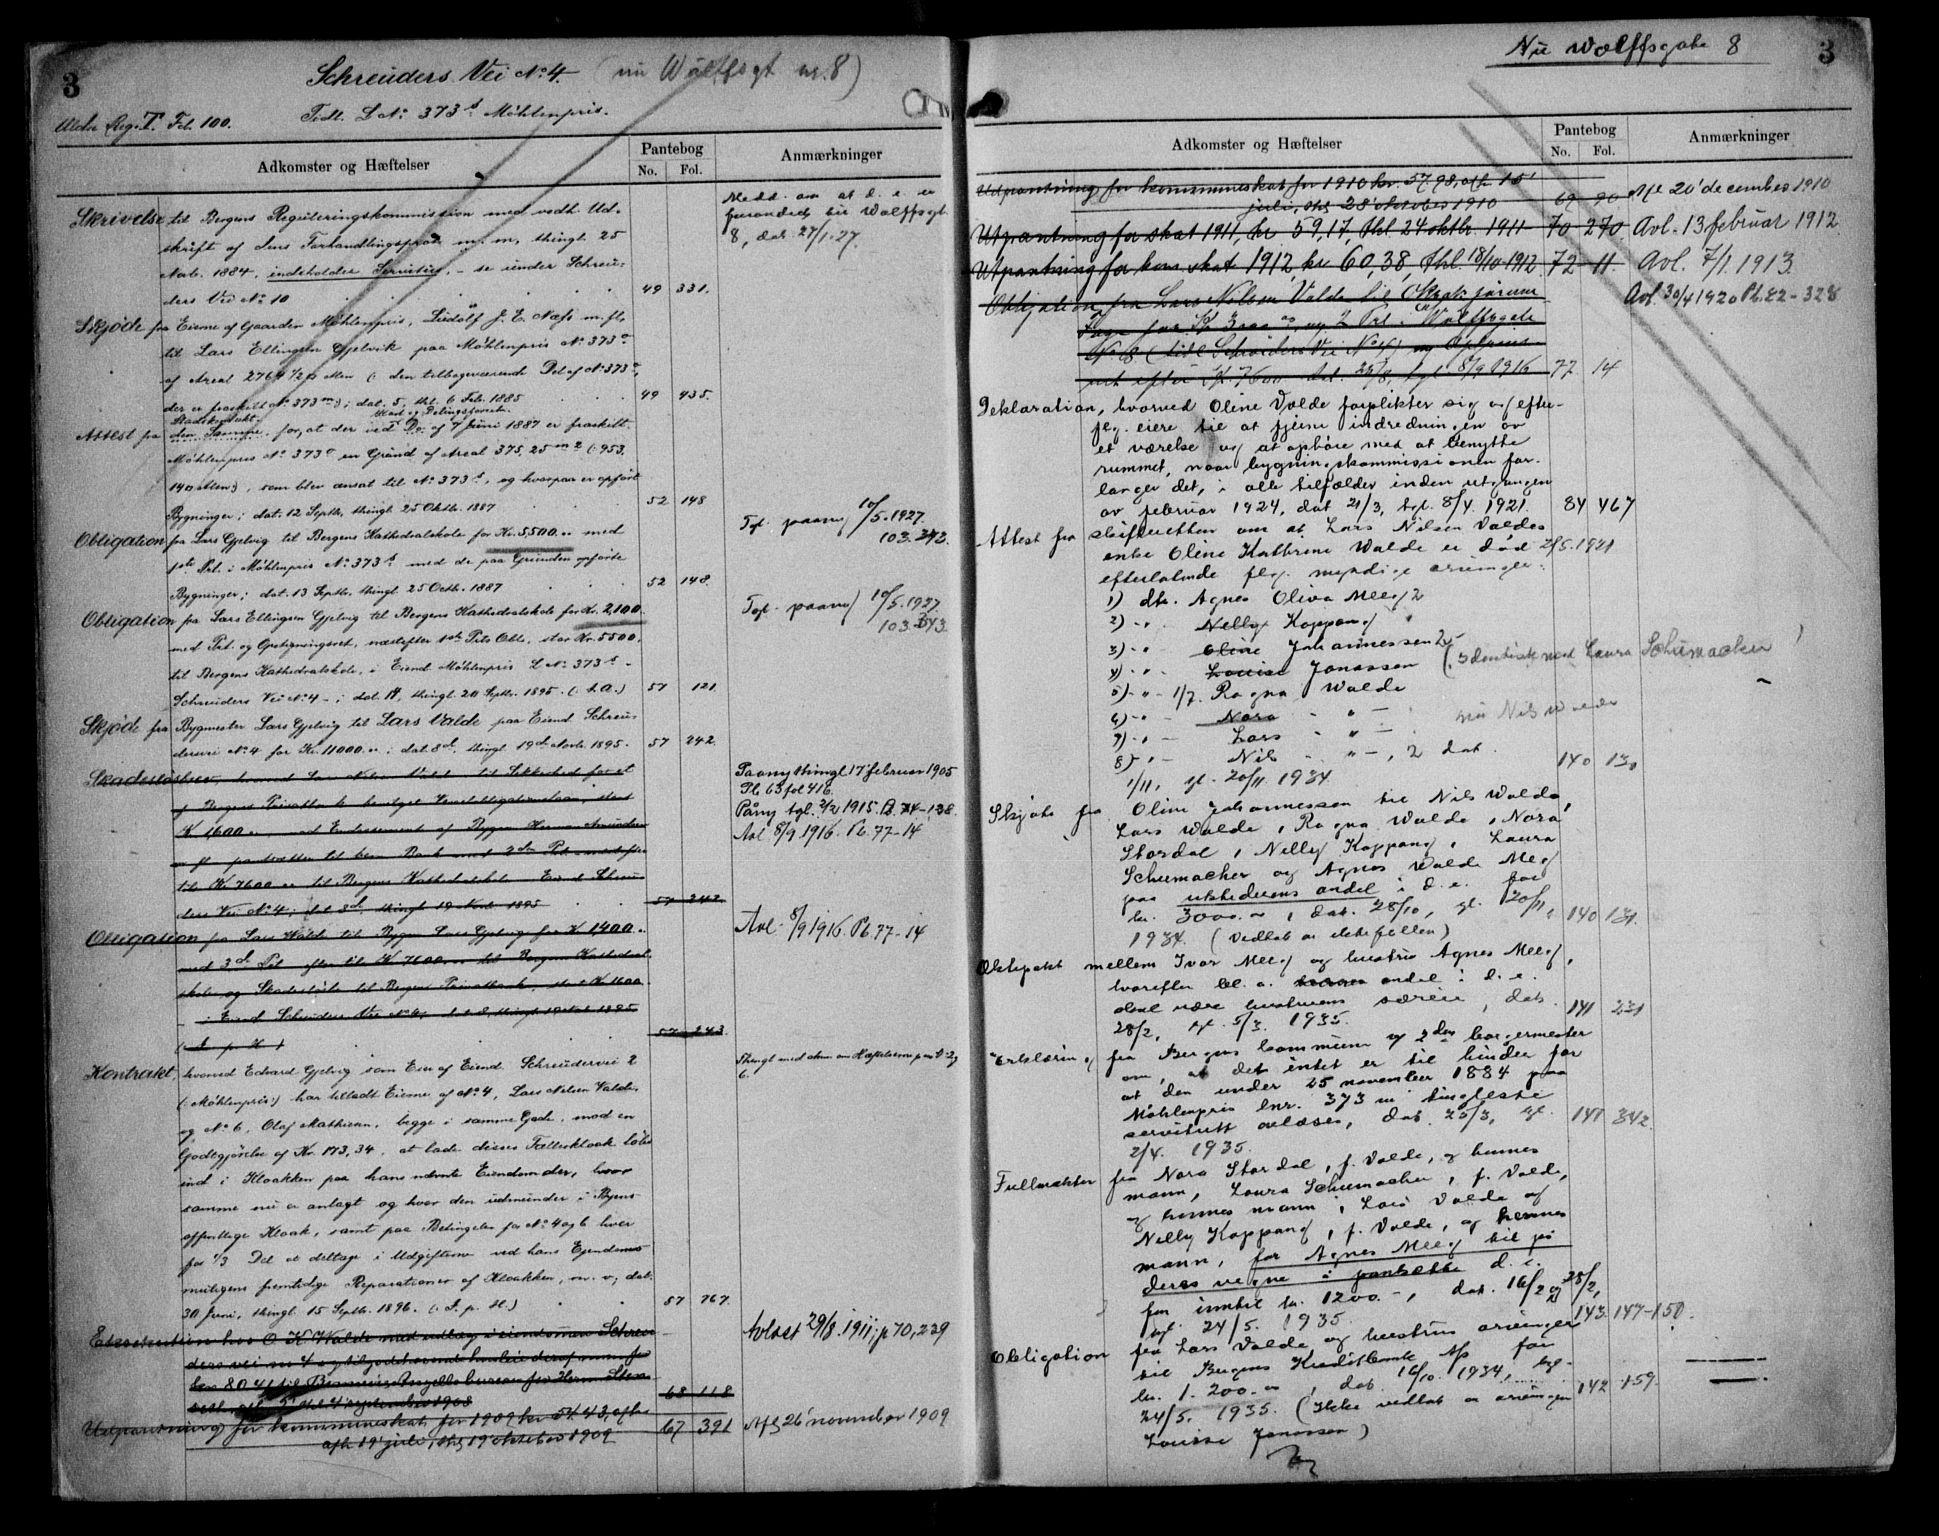 3
Schreuders Vei No 4. (nu Wolffsgt nr. 8)
Tidl. L No 373 d Möhlenpris.
Ældre Reg. T. Fol. 100.
Adkomster og Hæftelser
Pantebog
No. Fol.
Anmærkninger
Skrivelse til Bergens Reguleringskommission med vedh. Ud-
skrift af dens Forhandlingsprot. m. m. thingl. 25
Novb. 1884, indeholder Servitut, - se under Schreu-
ders Vei No 10 49 331.
Medd. om at d. e. er
forandret til Wolffsgt.
8, dat. 27/1-27.
Skjøde fra Eierne af Gaarden Möhlenpris, Ludolf J. E. Næss m. fl.
til Lars Ellingsen Gjelvik paa Möhlenpris No 373
af Areal 2764 1/2 Alen (: den tilbageværende Del af No 373
der er fraskilt No 373 m); dat. 5, thl. 6 Feb. 1885 49 435.
Attest fra Stadskonduktø-
den Samme for, at der ved Maal- og Delingsforretn. af 7 Juni 1887 er fraskilt
Möhlenpris No 373 en Grund af Areal 375,25 m2 (: 953,
140 Alen), som blev ansat til No 373 d, og hvorpaa er opført
Bygninger; dat. 12 Septbr, thingl 25 Oktbr. 1887 52 148
Obligation fra Lars Gjelvig til Bergens Kathedralskole for Kr. 5,500.00 med
1ste Prt. i Möhlenpris No 373 d med de paa Grunden opførte
Bygninger; dat. 13 Septbr. thingl 25 Octbr. 1887 52 148.
Tgl. paany 10/5.1927.
103. 343.
Obligation fra Lars Ellingsen Gjelvig til Bergens Kathedralskole for Kr. 2,100.
med Prt. og Opsigningsret, næstefter 1ste Prts Obl. stor Kr. 5500,
til Bergens Kathedralskole, i Eiend Möhlenpris L No 373 d -
Schreuders Vei No 4 -; dat. 14, thingl. 20 Septbr. 1895. (: L. A.) 57 121.
Tgl. paany 10/5.1927
103. 343.
Skjøde fra Bygmester Lars Gjelvig til Lars Valde paa Eiend Schreu-
dersvei No 4 for Kr. 11000.00; dat. 8de, thingl. 19de Novbr. 1895. 57 242.
Skadesløsbrev, hvorved Lars Nilsen Valde til Sikkerhed for et
af Bergens Privatbank bevilget
K 1600.00, med Endossement af Bygm.
m. fl. pantsætter til ben. Bank med 2den Prt. næstefter
til K 7600.00 til Bergens Kathedralskole Eiend Schreu-
ders Vei No 4; dat 8de, thingl 19 Novb. 1895 57 242
Paany thingl 17 februar 1905
Pb 63 fol 416.
Pany tgl. 2/2 1915. Pb. 74-138.
Avl 8/9 1916. Pb. 77-14
Obligation fra Lars Walde til Bygm. Lars Gjelvig for K 1,400.00
med 3de Prt. efter til K 7600.00 til Bergens Kathedral-
skole og Skadesløsbr. til Bergens Privatbank, stort K 1600
i Eiend Schreuders Vei No 4; dat. 8, thingl 19 Novb 1895
(: L. p. H.) 57 243.
Avl. 8/9 1916. Pb. 77-14
Kontrakt, hvorved Edvard Gjelvig som Eier af Eiend. Schreudersvei 2
(: Möhlenpris :) har tilladt Eierne af No 4, Lars Nilsen Valde
og No 6, Olaf Mathiesen, begge i samme Gade, mod en
Godtgjørelse af Kr. 173,34, at lade deres Fælleskloak løbe
ind i Kloakken paa hans nævnte Eiendomder, hvor
samme nu er anlagt og hvor den udmunder i Byens
offentlige Kloak, samt paa Betingelse for No 4 og 6 hver
for 1/3 Del at deltage i Udgifterne ved hans Eiendoms
muligens fremtidige Reparationer af Kloakken, m. v., dat.
30 Juni, thingl. 15 Septb. 1896. (: L. p. H.) 57 767.
Thingl med Anm om Hæftelserne paa No 2 og
6.
Exsekution hos O K Walde med udlæg i eiendommen Schreu-
ders vei nr 4 og tilgodehavende husleie deraf m. m. for
kr 80.41 til
thl 4 september 1908 68 118
Avlæst 29/8.1911; p 70, 239
Udpantning for kommuneskat for 1909 kr 54.43, afh
afh. 19' juli, thg 19 oktober 1909 67 391
Afl 26' november 1909
Nu Wolffsgate 8
3
Adkomster og Hæftelser
Pantebog
No. Fol.
Anmærkninger
Udpantning for kommuneskat for 1910 kr. 57.98, afh 15'
juli, thg 28' oktober 1910 69 90
Afl 20' december 1910
Utpantning for skat 1911, kr 59,17, thl 24 oktbr. 1911 70 270
Avl. 13 februar 1912.
Utpantning for kom. skat 1912, kr 60,38, thl. 18/10 1912. 72 11.
Avl. 7/1. 1913.
Obligation fra Lars Nilsen Valde til
for K 3200.00, m. 2 Prt. i Wolffsgate
No 8 (tidl Schrøders Vei No 4) og Opprior-
ret efter K. 7600. dat. 25/8, tgl. 8/9 1916 77 14
Avl. 30/4 1920 Pb. 82-328
Deklaration, hvorved Oline Valde forplikter sig og efter-
flg. eiere til at fjerne indredningen av
et værelse og at ophøre med at benytte
rummet, naar bygningskommissionen for-
langer det, i alle tilfælder inden utgangen
av februar 1924, dat 21/3, tgl. 8/4. 1921. 84 467
Attest fra skifteretten om at Lars Nilsen Valdes
enke Oline Kathrine Walde er død 2/5.1921
efterlatende flg. myndige arvinger:
1) dtr. Agnes Oliva Meeg 2
2) -"- Nelly Koppang
3) -"- Oline Johannessen 2
4) -"- Louise Jonassen (identisk med Laura Schumacher)
5) -"- 1/7. Ragna Walde
6) -"- Nora - " -
7) -"- Lars - " -
8) -"- Nils - " -, 2 dat.
nu Nils Walde
1/11, gl. 20/11 1934. 140 130
Skjøte fra Oline Johannessen til Nils Walde,
Lars Walde, Ragna Walde, Nora
Stordal, Nelly Koppang, Laura
Schumacher og Agnes Walde Meeg
paa utstederens andel i d. e. for
kr. 3000.-, dat. 25/10, gl. 20/11,
1934. (Vedtak av ektefellen) 140 131.
Ektepakt mellem Ivar Meeg og hustru Agnes Meeg,
hvorefter bl. a. hennes andel i d. e.
skal være hustruens særeie, dat.
28/2, gl. 5/3. 1935. 141 231
Erklæring fra Bergens kommune og 2den borgermester
om, at det intet er til hinder for
at den under 25 november 1884 paa
Möhlenpris lnr. 373 m tinglæste
servitutt avlæses, dat. 25/3, gl.
2/4. 1935. 141 342.
Fullmakter fra Nora Stordal, f. Valde, og hennes
mann, Laura Schumacher, f. Valde,
og hennes mann, Lars Valde og
Nelly Koppang, f. Valde, og hennes
mann, for Agnes Meeg til på
deres vegne å pantsette d. e.
for inntil kr. 1200.-, dat. 16/2 og 25/2,
tgl. 24/5. 1935. 143 147-150.
Obligation fra Lars Valde og hustrus arvinger
til Bergens Kreditbank A/s for
kr. 1.200.00, dat. 16/10. 1934, tgl.
24/5. 1935. (Ikke vedtatt av arvingen
Louise Jonassen) 142 159.